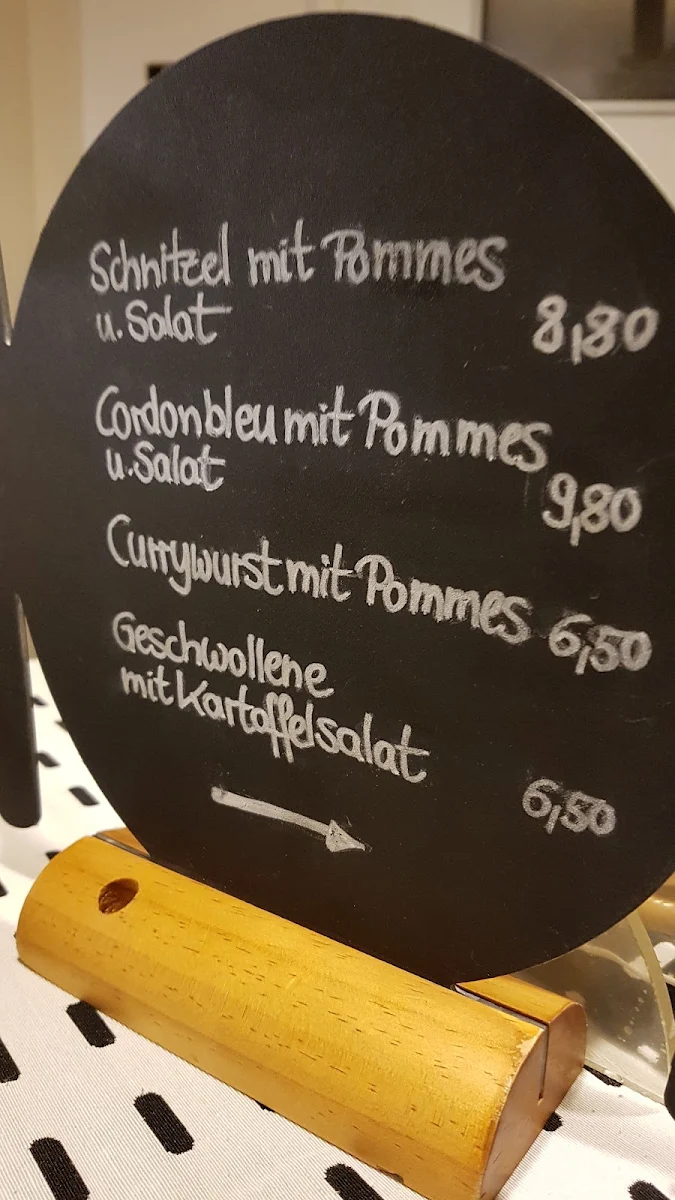 Schnitzel mit Pommes
u. Salat 8,80
Cordonbleu mit Pommes
u. Salat 9,80
Currywurst mit Pommes 6,50
Geschwollene
mit Kartoffelsalat 6,50